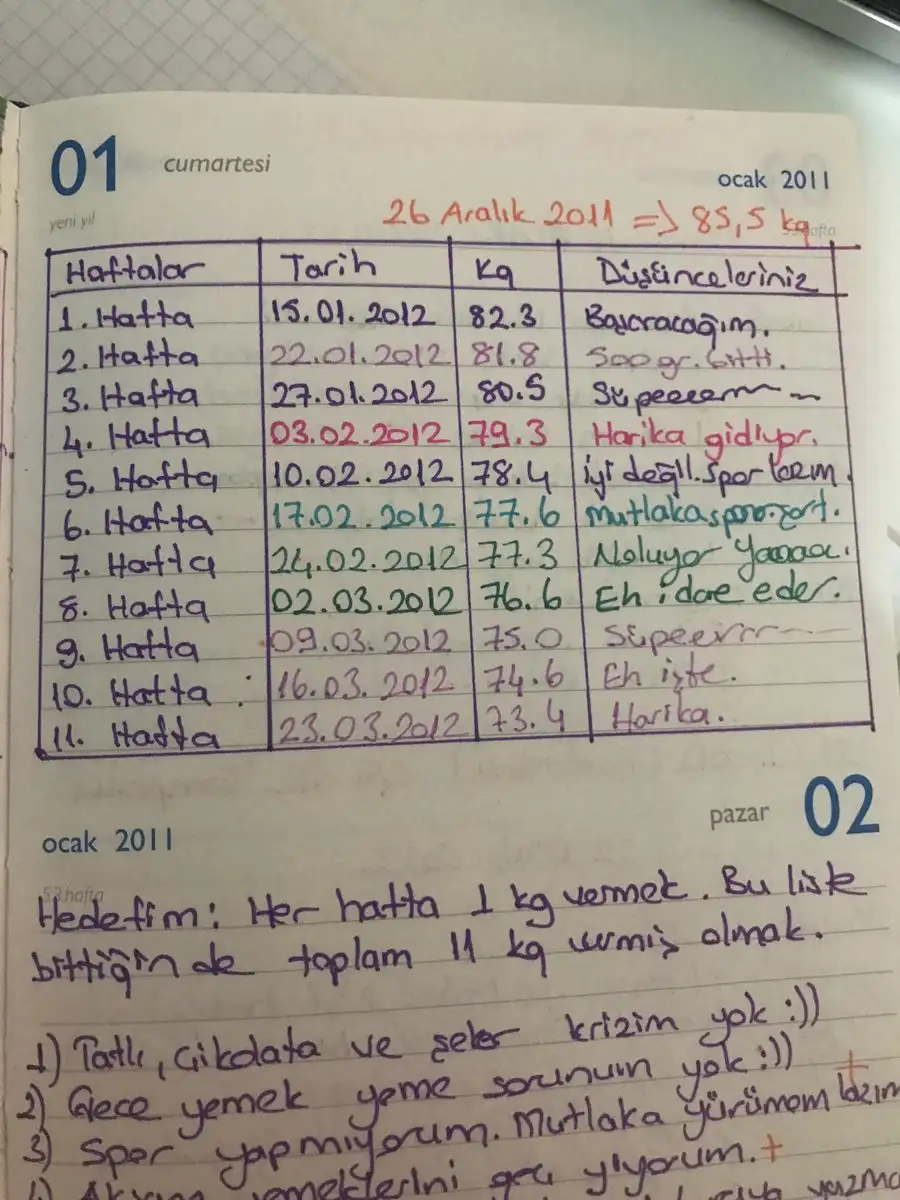 01 cumartesi
ocak 2011
yeni yıl
26 Aralık 2011 => 85,5 kg
Haftalar Tarih Kg Düşünceleriniz
1. Hafta 15.01.2012 82.3 Başaracağım.
2. Hafta 22.01.2012 81.8 500 gr. bitti.
3. Hafta 27.01.2012 80.5 Süpeeeerr
4. Hafta 03.02.2012 79.3 Harika gidiyor.
5. Hafta 10.02.2012 78.4 İyi değil. Spor lazım.
6. Hafta 17.02.2012 77.6 Mutlaka spor şart.
7. Hafta 24.02.2012 77.3 Noluyor yaaaa.
8. Hafta 02.03.2012 76.6 Eh idare eder.
9. Hafta 09.03.2012 75.0 Süpeerrr
10. Hafta : 16.03.2012 74.6 Eh işte.
11. Hafta 23.03.2012 73.4 Harika.
pazar 02
ocak 2011
53.hafta
Hedefim: Her hafta 1 kg vermek. Bu liste
bittiğinde toplam 11 kg vermiş olmak.
1) Tatlı, çikolata ve şeker krizim yok :))
2) Gece yemek yeme sorunum yok :))
3) Spor yapmıyorum. Mutlaka yürümem lazım +
yemeklerini geç yiyorum. +